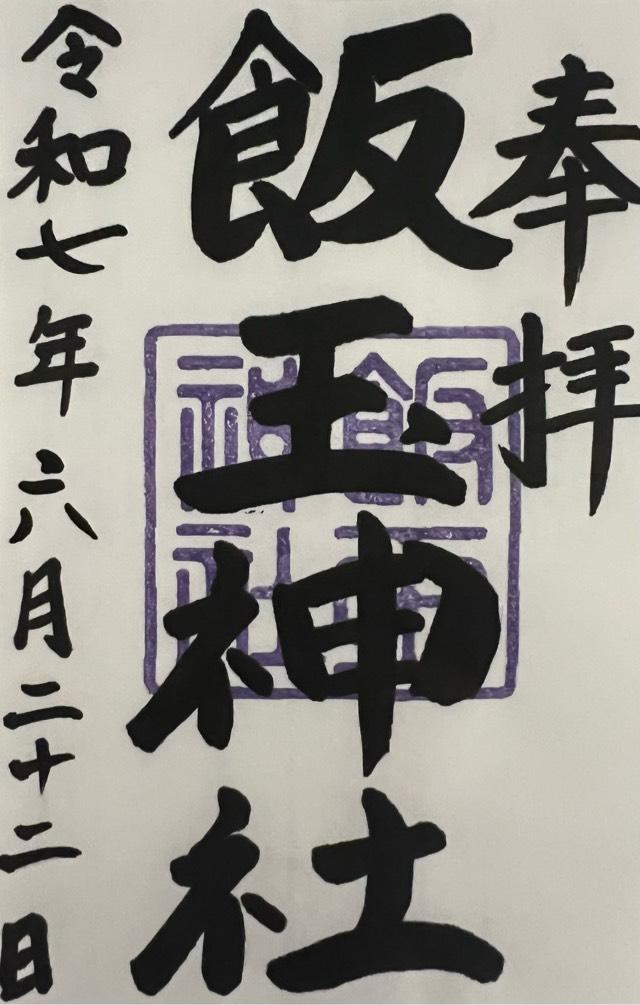 奉拝
飯玉神社
飯玉神社
令和七年六月二十二日